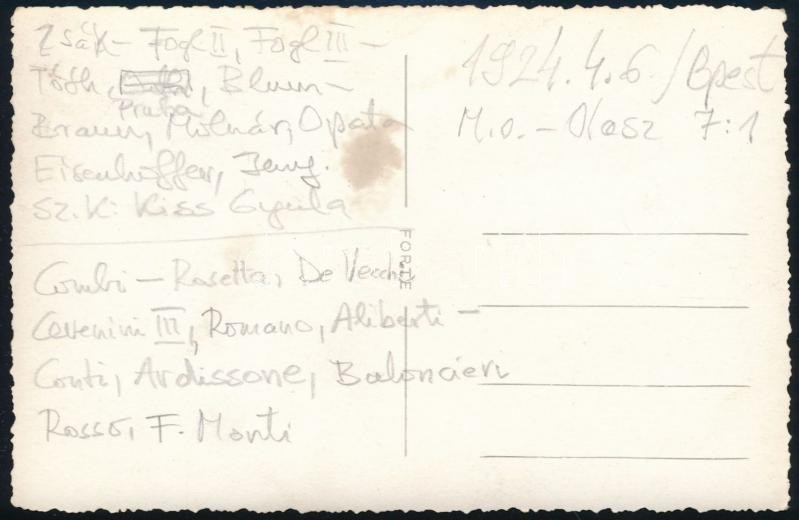 Zsák – Fogl II, Fogl III –
Tóth, Blum –
Pruha
Braun, Molnár, Opata
Eisenhoffer, Jeny.
Sz.K: Kiss Gyula
Combi – Rosetta, De Vecchi
Cevenini III, Romano, Aliberti –
Conti, Ardissone, Baloncieri
Rosso, F. Monti
1924.4.6/Bpest
M.o. – Olasz 7:1
FORTE